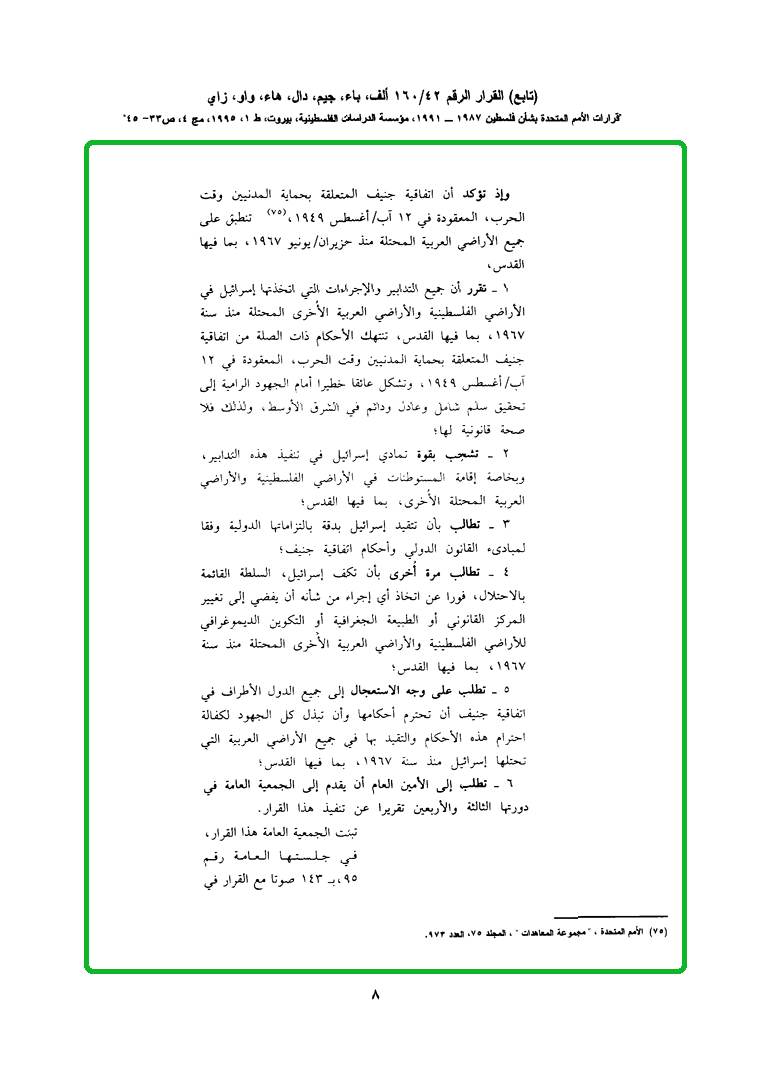 (تابع) القرار الرقم ١٦٠/٤٢ ألف، باء، جيم، دال، هاء، واو، زاي
"قرارات الأمم المتحدة بشأن فلسطين ١٩٨٧ ــ ١٩٩١، مؤسسة الدراسات الفلسطينية، بيروت، ط ١، ١٩٩٥، مج ٤، ص٣٣- ٤٥"
وإذ تؤكد أن اتفاقية جنيف المتعلقة بحماية المدنيين وقت
الحرب، المعقودة في ١٢ آب/أغسطس ١٩٤٩،(٧٥) تنطبق على
جميع الأراضي العربية المحتلة منذ حزيران/يونيو ١٩٦٧، بما فيها
القدس،
١ ـ تقرر أن جميع التدابير والإجراءات التي اتخذتها إسرائيل في
الأراضي الفلسطينية والأراضي العربية الأُخرى المحتلة منذ سنة
١٩٦٧، بما فيها القدس، تنتهك الأحكام ذات الصلة من اتفاقية
جنيف المتعلقة بحماية المدنيين وقت الحرب، المعقودة في ١٢
آب/أغسطس ١٩٤٩، وتشكل عائقا خطيرا أمام الجهود الرامية إلى
تحقيق سلم شامل وعادل ودائم في الشرق الأوسط، ولذلك فلا
صحة قانونية لها؛
٢ ـ تشجب بقوة تمادي إسرائيل في تنفيذ هذه التدابير،
وبخاصة إقامة المستوطنات في الأراضي الفلسطينية والأراضي
العربية المحتلة الأُخرى، بما فيها القدس؛
٣ ـ تطالب بأن تتقيد إسرائيل بدقة بالتزاماتها الدولية وفقا
لمبادىء القانون الدولي وأحكام اتفاقية جنيف؛
٤ ـ تطالب مرة أُخرى بأن تكف إسرائيل، السلطة القائمة
بالاحتلال، فورا عن اتخاذ أي إجراء من شأنه أن يفضي إلى تغيير
المركز القانوني أو الطبيعة الجغرافية أو التكوين الديموغرافي
للأراضي الفلسطينية والأراضي العربية الأُخرى المحتلة منذ سنة
١٩٦٧، بما فيها القدس؛
٥ ـ تطلب على وجه الاستعجال إلى جميع الدول الأطراف في
اتفاقية جنيف أن تحترم أحكامها وأن تبذل كل الجهود لكفالة
احترام هذه الأحكام والتقيد بها في جميع الأراضي العربية التي
تحتلها إسرائيل منذ سنة ١٩٦٧، بما فيها القدس؛
٦ ـ تطلب إلى الأمين العام أن يقدم إلى الجمعية العامة في
دورتها الثالثة والأربعين تقريرا عن تنفيذ هذا القرار.
تبنت الجمعية العامة هذا القرار،
في جلستها العامة رقم
٩٥، بـ ١٤٣ صوتا مع القرار في
(٧٥) الأمم المتحدة، "مجموعة المعاهدات"، المجلد ٧٥، العدد ٩٧٣.
٨